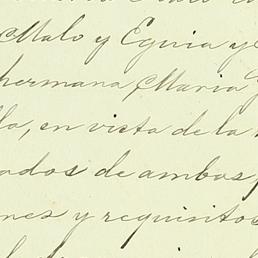 Malo y Eguia y
hermana Maria
en vista de la
ados de ambas
nes y requisitos